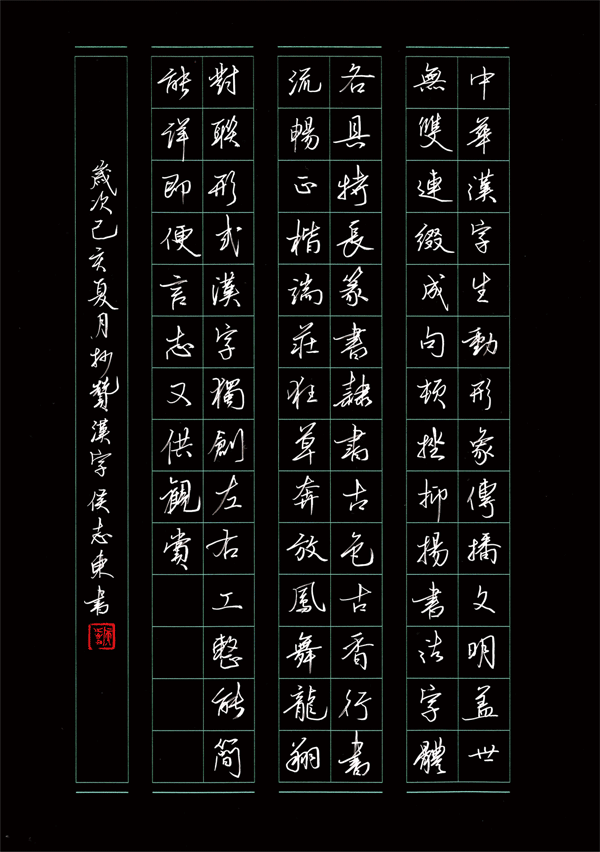 中華漢字生動形象傳播文明蓋世
無雙連綴成句頓挫抑揚書法字體
各具特長篆書隸書古色古香行書
流暢正楷端莊狂草奔放鳳舞龍翔
對聯形式漢字獨創左右工整能簡
能詳即便言志又供觀賞
歲次己亥夏月抄贊漢字侯志東書